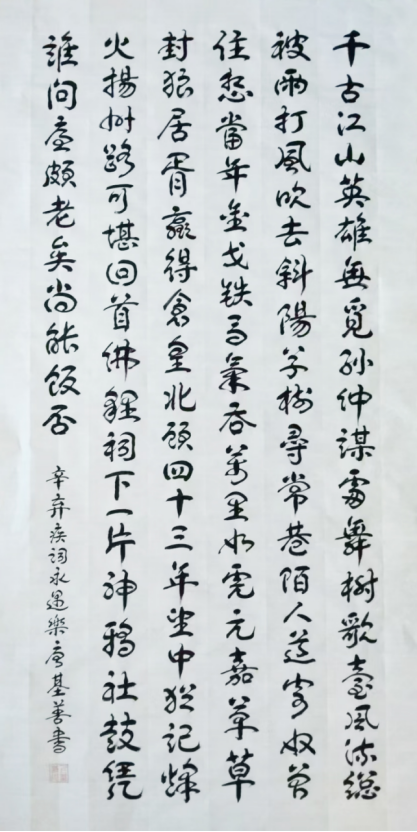 千古江山英雄無覓孫仲謀處舞榭歌臺風流總
被雨打風吹去斜陽草樹尋常巷陌人道寄奴曾
住想當年金戈铁馬氣吞萬里如虎元嘉草草
封狼居胥贏得倉皇北顧四十三年望中猶記烽
火揚州路可堪回首佛貍祠下一片神鴉社鼓凭
誰問廉頗老矣尚能飯否
辛弃疾词永遇樂唐基善書